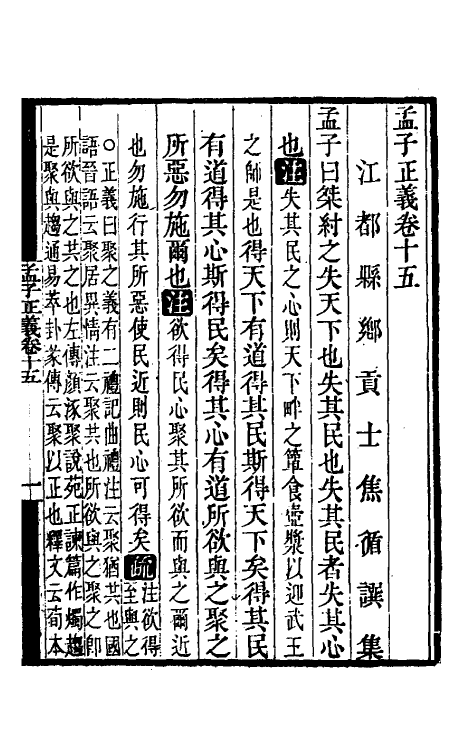 孟子正義卷十五
江都縣鄉貢士焦循譔集
孟子曰桀紂之失天下也失其民也失其民者失其心
也注失其民之心則天下畔之簞食壺漿以迎武王
之師是也得天下有道得其民斯得天下矣得其民
有道得其心斯得民矣得其心有道所欲與之聚之
所惡勿施爾也注欲得民心聚其所欲而與之爾近
也勿施行其所惡使民近則民心可得矣疏注欲得
至與之
○正義曰聚之義有二禮記曲禮注云聚猶共也國
語晉語云聚居異情注云聚共也所欲與之聚之卽
所欲與之共之也左傳顏涿聚說苑正諫篇作燭趨
是聚與趨通易萃卦彖傳云聚以正也釋文云荀本
孟子正義卷十五
一